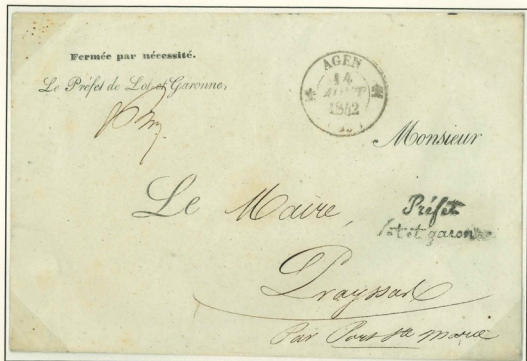 Fermée par nécessité.
Le Préfet de Lot et Garonne,
AGEN
14
AOUT
1842
Monsieur
Le Maire,
Préfet
lot et garonne
Prayssas
Par Port Ste Marie